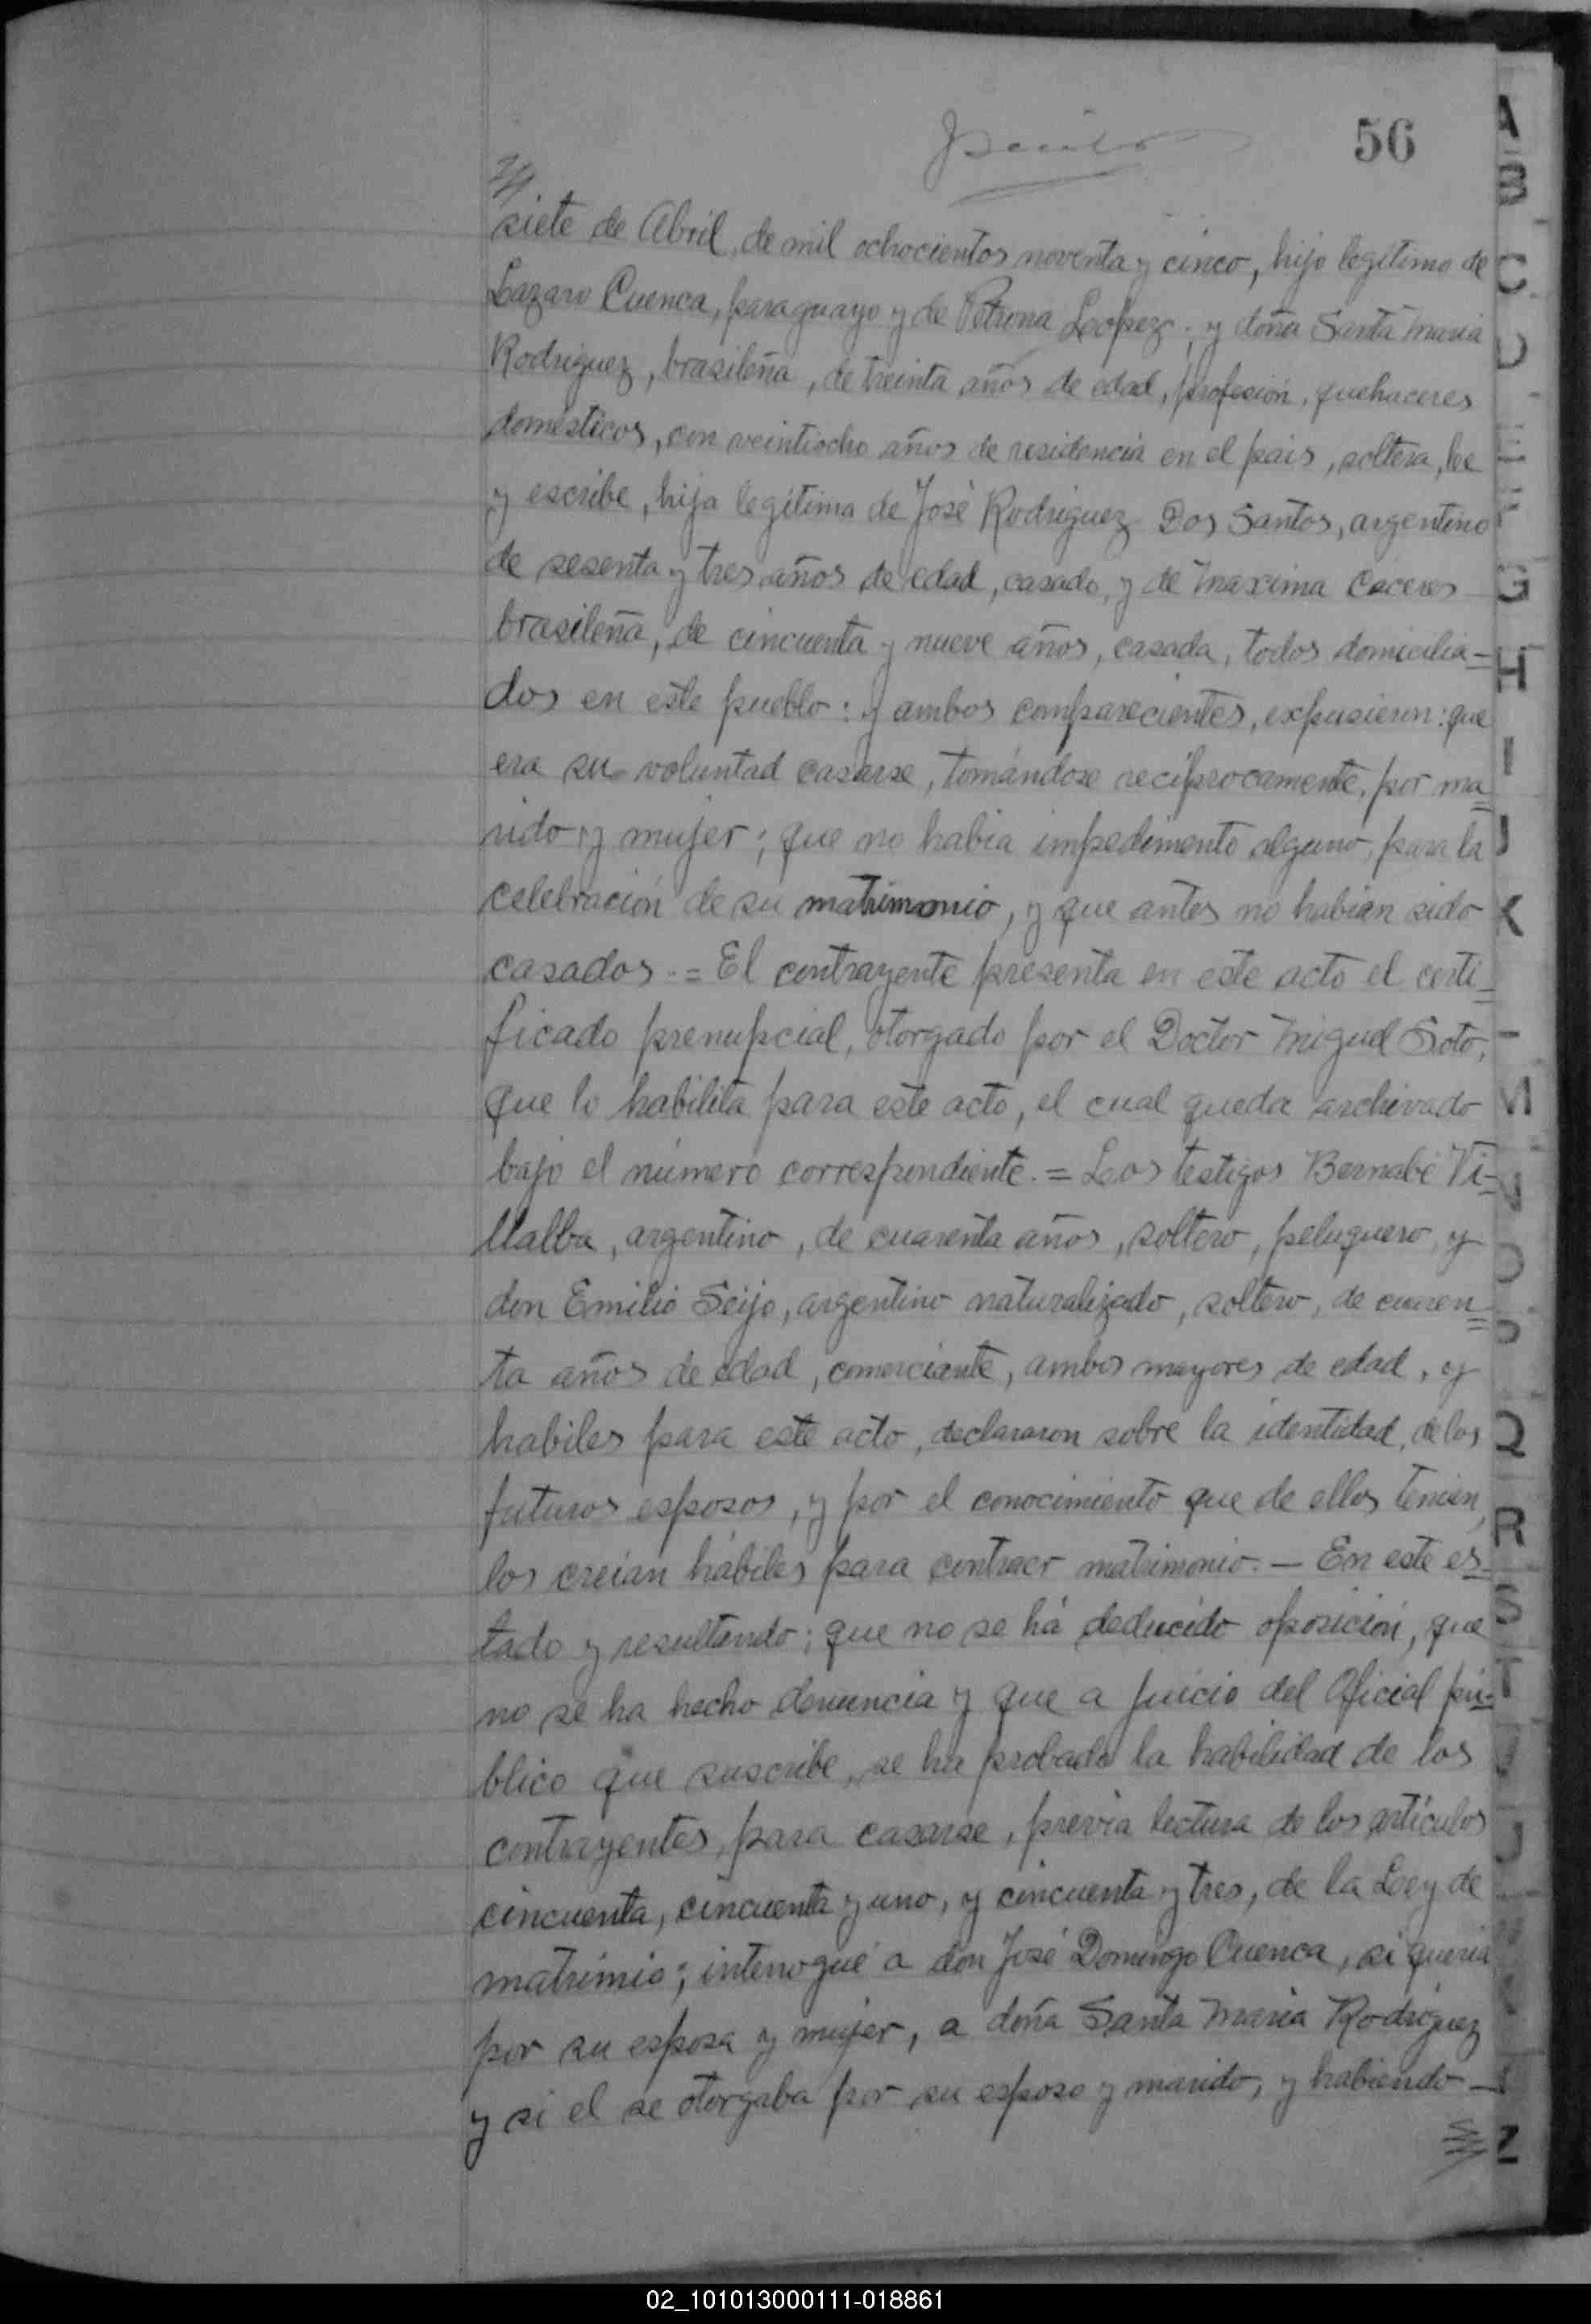 56
siete de Abril, de mil ochocientos noventa y cinco, hijo legítimo de
Lazaro Cuenca, paraguayo y de Petrona Lopez; y doña Santa Maria
Rodriguez, brasileña, de treinta años de edad, profesión, quehaceres
domésticos, con veintiocho años de residencia en el pais, soltera, lee
y escribe, hija legítima de José Rodriguez Dos Santos, argentino
de sesenta y tres años de edad, casado, y de Maxima Caceres
brasileña, de cincuenta y nueve años, casada, todos domicilia-
dos en este pueblo: y ambos comparecientes, expusieron: que
era su voluntad casarse, tomándose recíprocamente, por ma=
rido y mujer; que no habia impedimento alguno, para la
celebración de su matrimonio, y que antes no habian sido
casados.= El contrayente presenta en este acto el certi=
ficado prenupcial, otorgado por el Doctor Miguel Soto,
que lo habilita para este acto, el cual queda archivado
bajo el número correspondiente.= Los testigos Bernabé Vi=
llalba, argentino, de cuarenta años, soltero, peluquero, y
don Emilio Seijo, argentino naturalizado, soltero, de cuaren=
ta años de edad, comerciante, ambos mayores de edad, y
habiles para este acto, declararon sobre la identidad, de los
futuros esposos, y por el conocimiento que de ellos tenian,
los creían hábiles para contraer matrimonio.— En este es-
tado y resultando; que no se há deducido oposición, que
no se ha hecho denuncia y que a juicio del Oficial pú=
blico que suscribe, se ha probado la habilidad de los
contrayentes, para casarse, previa lectura de los artículos
cincuenta, cincuenta y uno, y cincuenta y tres, de la Ley de
matrimio; interrogué a don José Domingo Cuenca, si queria
por su esposa y mujer, a doña Santa Maria Rodriguez
y si el se otorgaba por su esposo y marido, y habiendo—
A
B
C
D
G
H
I
J
K
M
N
O
P
Q
R
S
T
U
Z
02_101013000111-018861